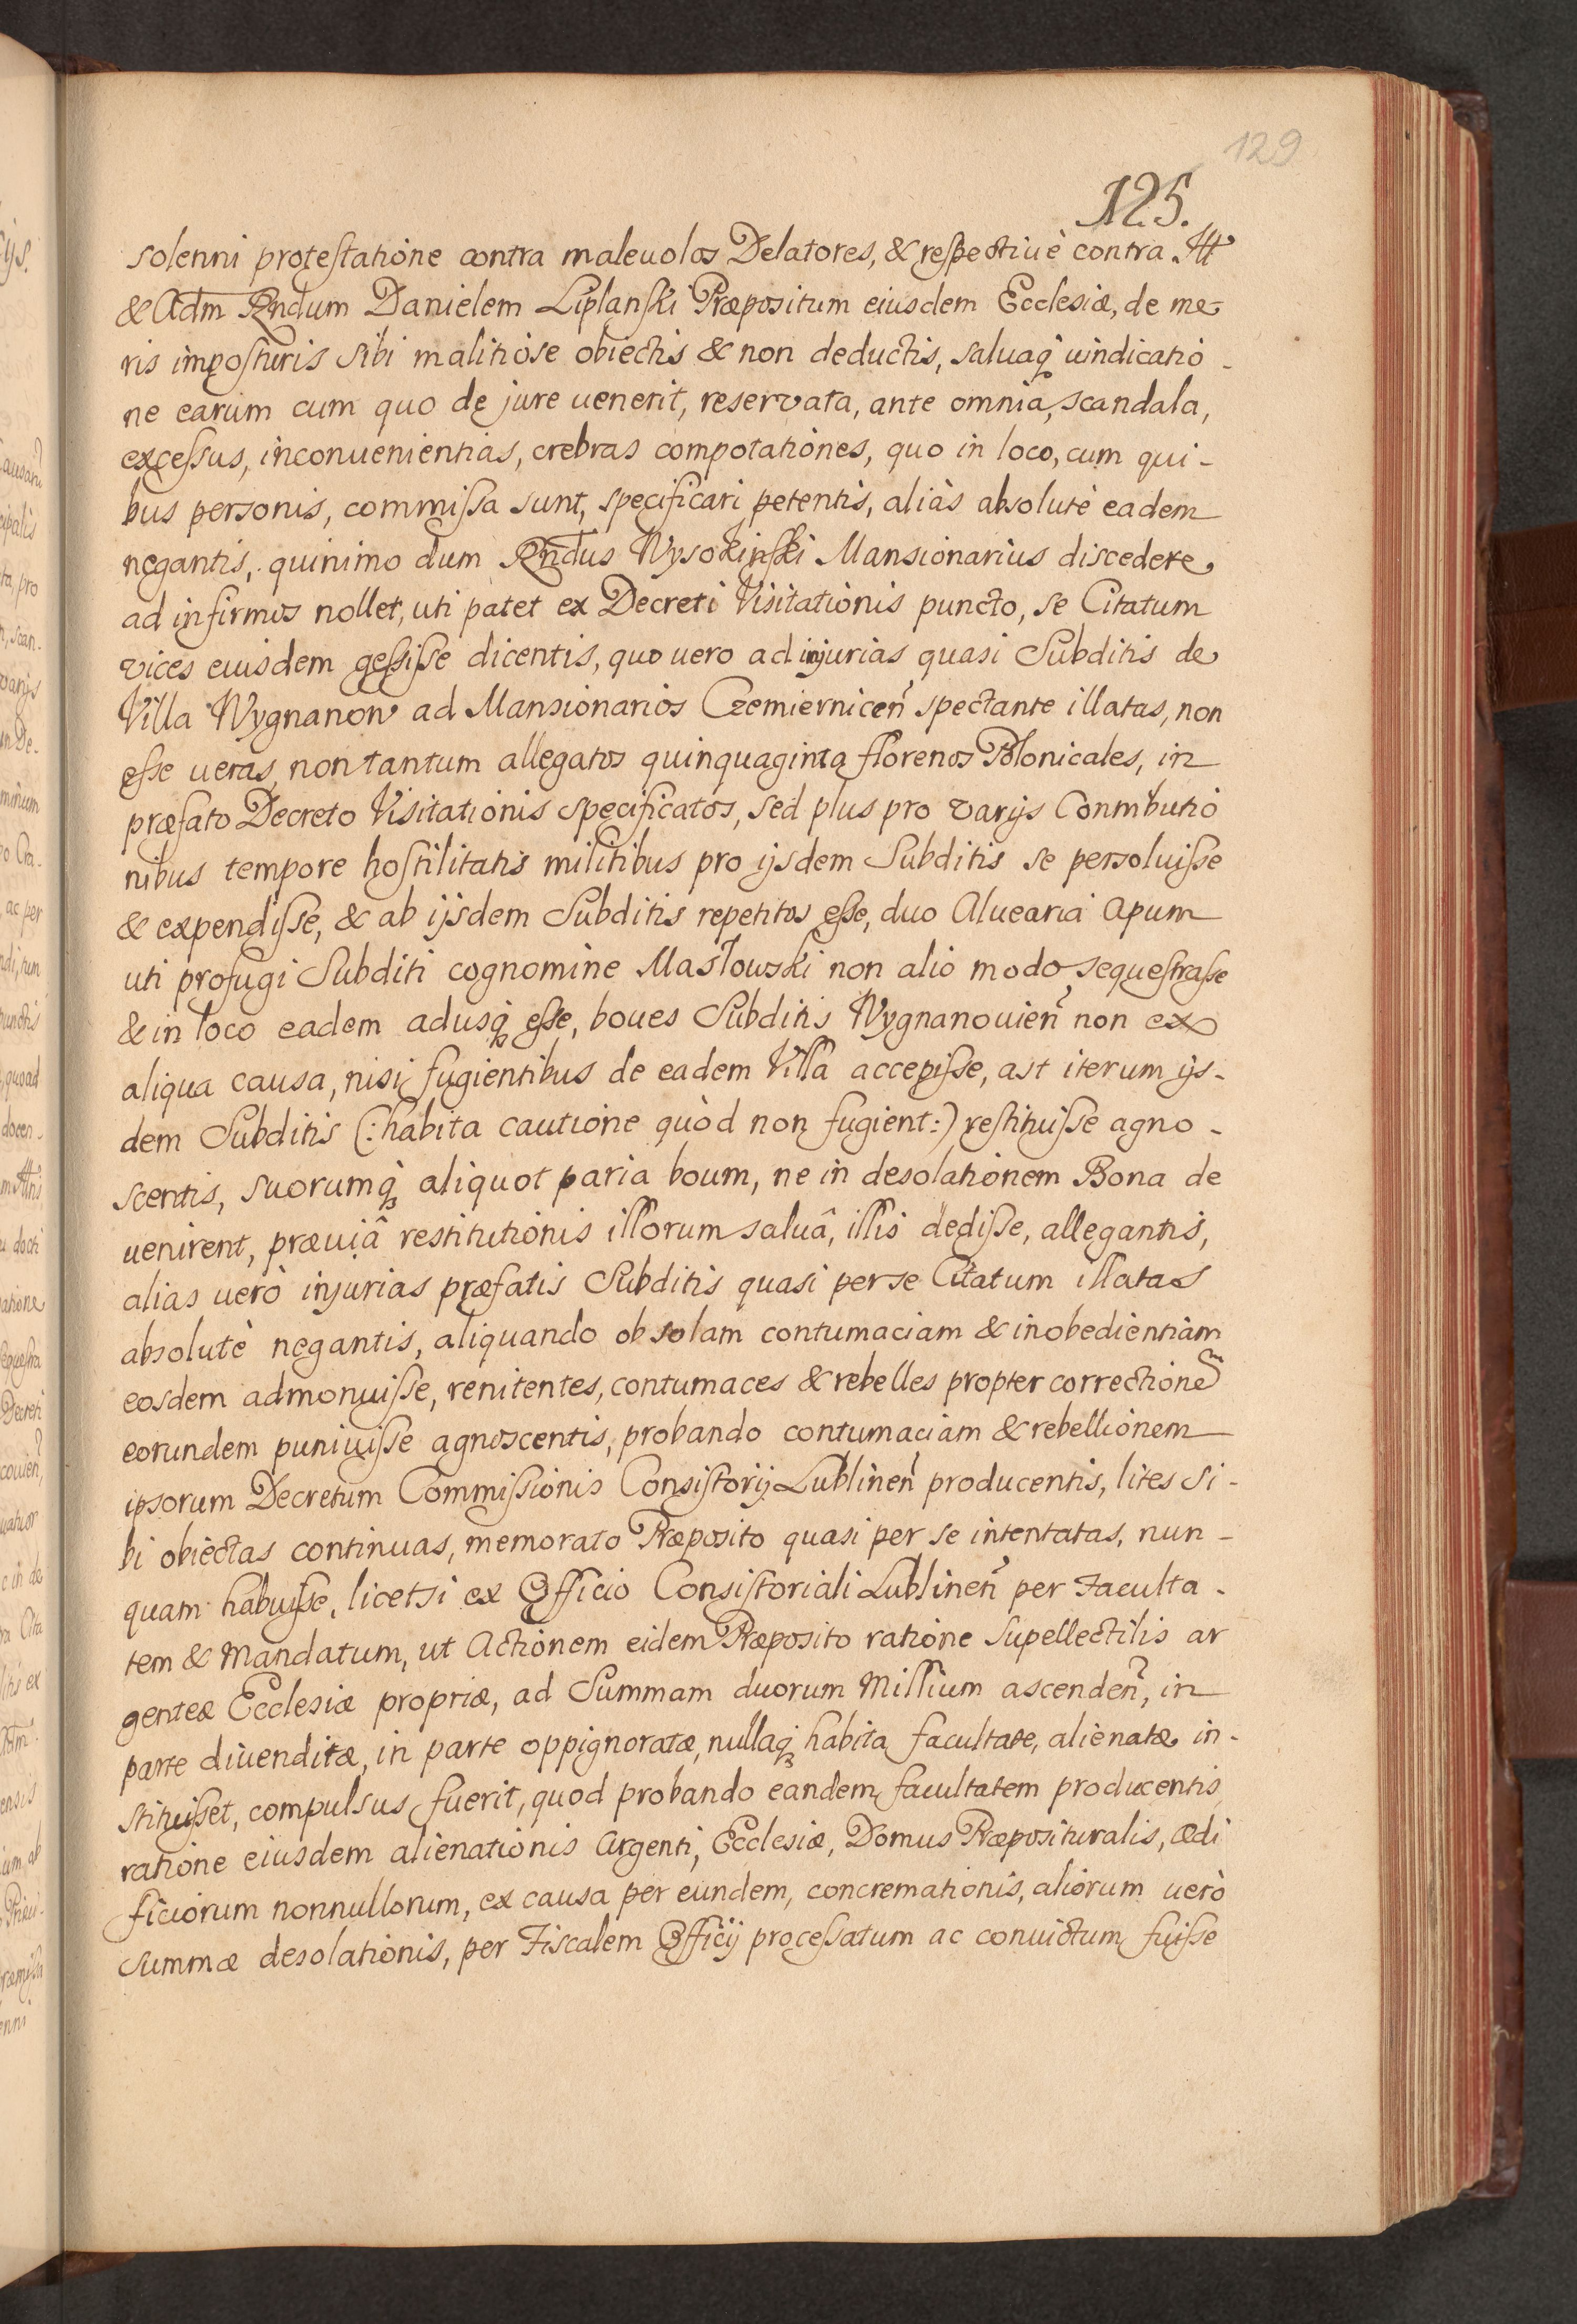 129
125.
solenni protestatione contra maleuolos Delatores, & respectiuè contra Att
& Adm Rndum Danielem Liplanski Præpositum eiusdem Ecclesiæ, de me-
ris imposturis sibi malitiose obiectis & non deductis, saluaq; uindicatio-
ne earum cum quo de jure uenerit, reservata, ante omnia, scandala,
excessus, inconuenientias, crebras compotationes, quo in loco, cum qui-
bus personis, commissa sunt, specificari petentis, aliàs absolutè eadem
negantis, quinimo dum Rndus Wysokinski Mansionarius discedere
ad infirmos nollet, uti patet ex Decreti Visitationis puncto, se Citatum
vices euisdem gessisse dicentis, quo uero ad injurias quasi Subditis de
Villa Wygnanow ad Mansionarios Czemierniceñ spectante illatas, non
esse ueras, non tantum allegatos quinquaginta florenos Polonicales, in
præfato Decreto Visitationis specificatos, sed plus pro varijs Contributio
nibus tempore hostilitatis militibus pro ijsdem Subditis se persoluisse
& expendisse, & ab ijsdem Subditis repetitos esse, duo Aluearia Apum
uti profugi Subditi cognomine Masłowski non alio modo sequestrasse
& in loco eadem adusq; esse, boues Subditis Wygnanouieñ non ex
aliqua causa, nisi fugientibus de eadem Villa accepisse, ast iterum ijs-
dem Subditis (: habita cautione quòd non fugient :) restituisse agno-
scentis, suorumq; aliquot paria boum, ne in desolationem Bona de
uenirent, præuiâ restitutionis illorum saluâ, illis dedisse, allegantis,
alias uerò injurias præfatis Subditis quasi per se Citatum illatas
absolutè negantis, aliquando ob solam contumaciam & inobedientiam
eosdem admonuisse, renitentes, contumaces & rebelles propter correctionem
eorundem puniuisse agnoscentis, probando contumaciam & rebellionem
ipsorum Decretum Commissionis Consistorij Lublineñ producentis, lites si-
bi obiectas continuas, memorato Præposito quasi per se intentatas, nun-
quam habuisse, licetsi ex Officio Consistoriali Lublineñ per Faculta-
tem & Mandatum, ut Actionem eidem Præposito ratione Supellectilis ar
genteæ Ecclesiæ propriæ, ad Summam duorum Millium ascendeñ, in
parte diuenditæ, in parte oppignoratæ, nullaq; habita facultate, alienatæ in-
stituisset, compulsus fuerit, quod probando eandem facultatem producentis
ratione eiusdem alienationis Argenti, Ecclesiæ, Domus Præposituralis, ædi
ficiorum nonnullorum, ex causa per eundem, concremationis, aliorum uerò
summæ desolationis, per Fiscalem Officij processatum ac conuictum fuisse